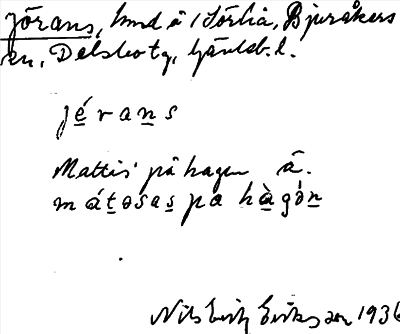 Jörans, hmd å 1 Sörlia, Bjuråkers
sn, Delsbo tg, Gävleb. l.
jérans
Mattis' på hagen å.
mátosas pa hàgón
Nils Erik Eriksson 1936